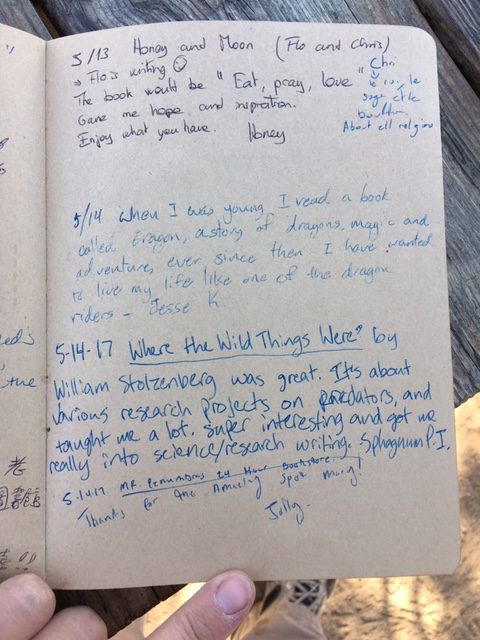 5/13 Honey and Moon (Flo and Chris)
→ Flo's writing
The book would be "Eat, pray, love"
Gave me hope and inspiration.
Enjoy what you have. Honey
Chri
le
sage et le
About all religions
5/14 When I was young I read a book
called Eragon, a story of dragons, magic and
adventures, ever since then I have wanted
to live my life like one of the dragon
riders - Jesse K
5-14-17 Where the Wild Things Were" by
William Stolzenberg was great. It's about
various research projects on predators, and
taught me a lot. Super interesting and got me
really into science/research writing. Sphagnum P.I.
5-14-17 Mr. Penumbras 24 Hour Bookstore
Thanks for one Amazing Spot Mary!
Jolly-
the
老
圖書館